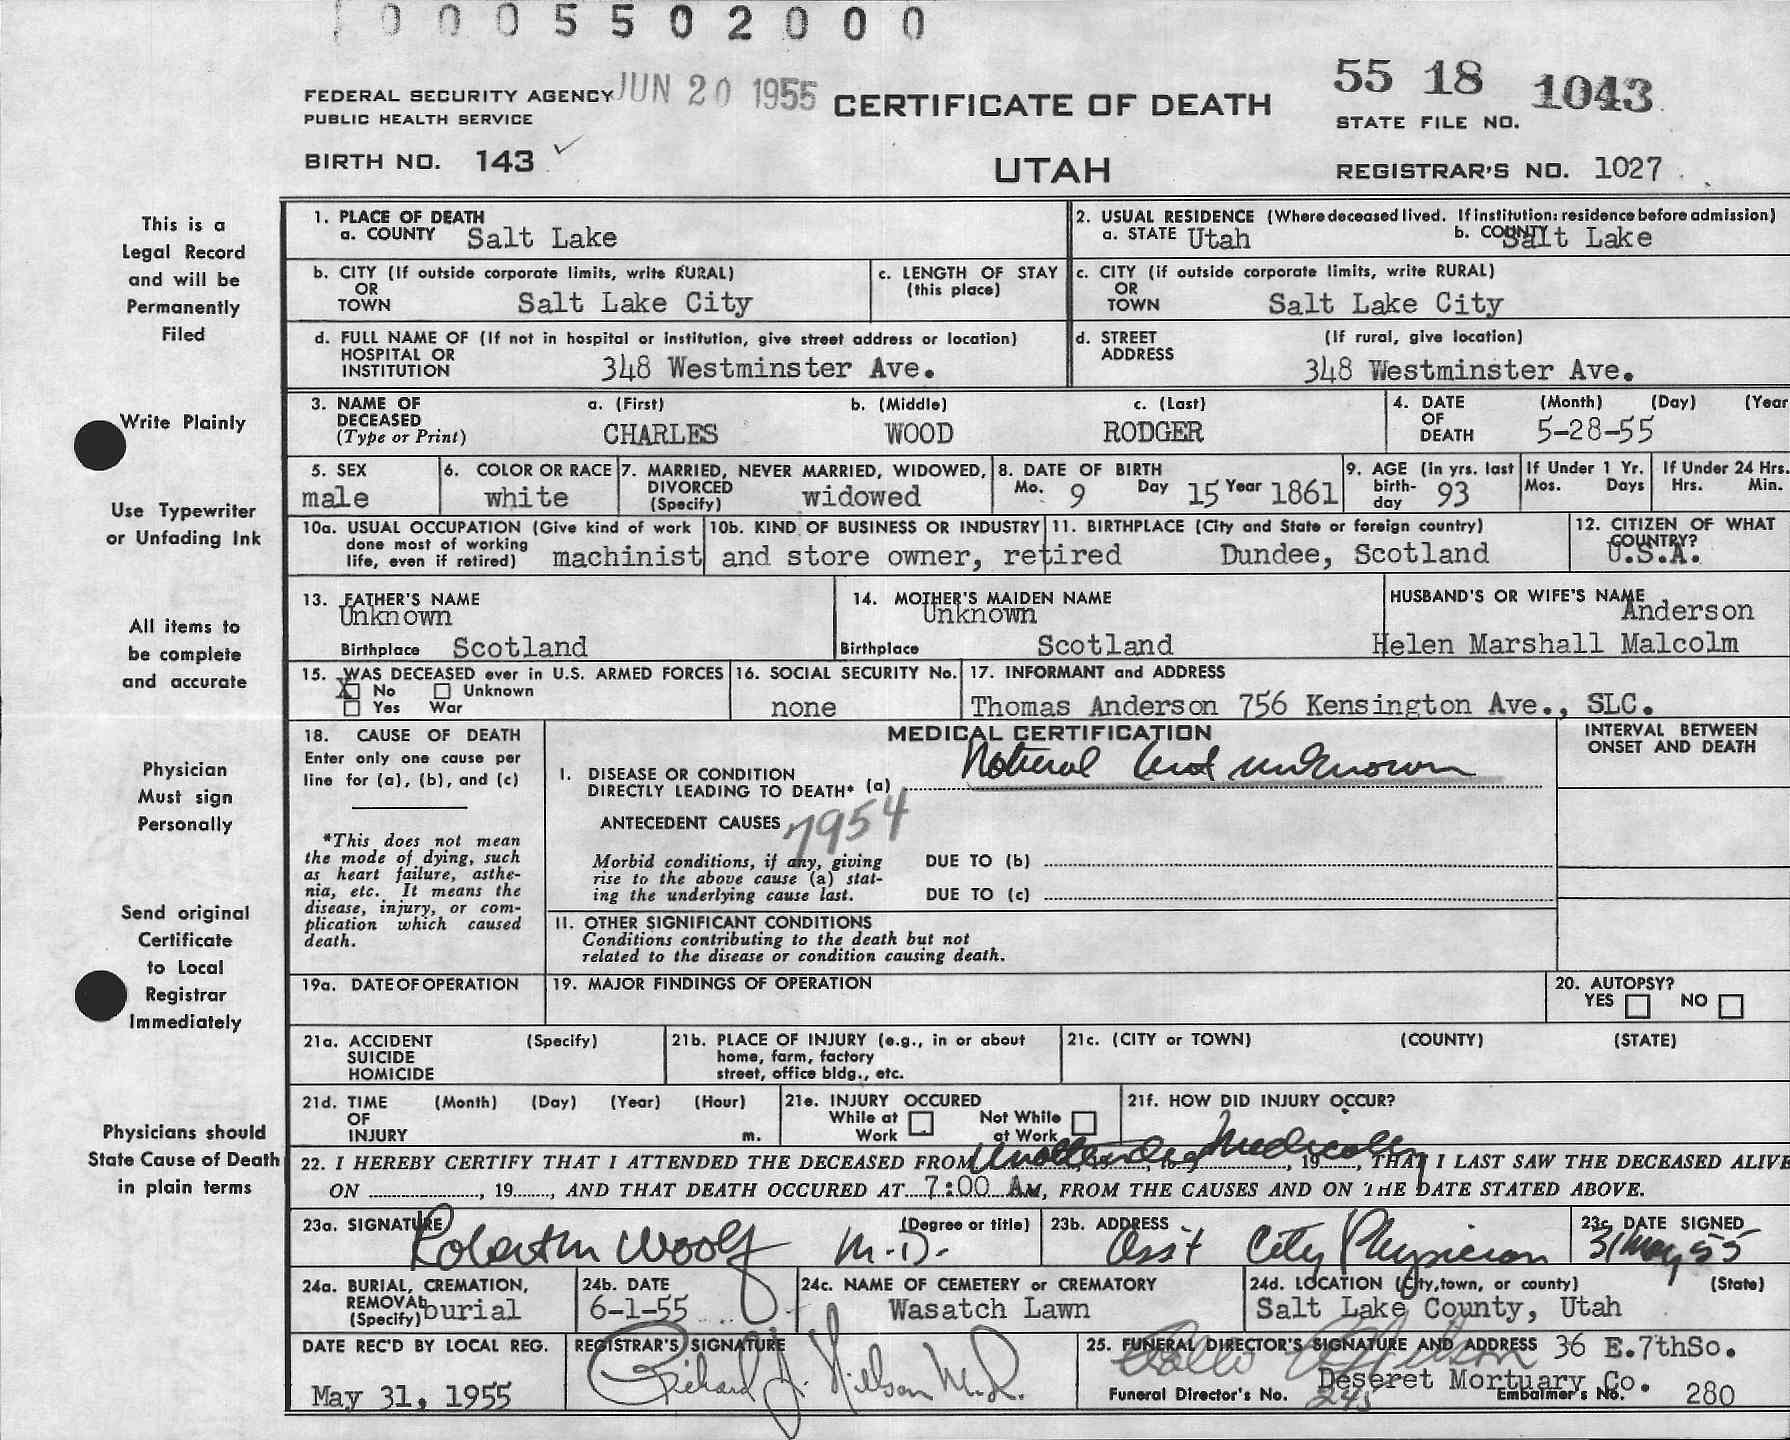 0 0 0 5 5 0 2 0 0 0
FEDERAL SECURITY AGENCY JUN 20 1955 CERTIFICATE OF DEATH 55 18 1043
PUBLIC HEALTH SERVICE STATE FILE NO.
BIRTH NO. 143 ✓ UTAH REGISTRAR'S NO. 1027
This is a
Legal Record
and will be
Permanently
Filed
Write Plainly
Use Typewriter
or Unfading Ink
All items to
be complete
and accurate
Physician
Must sign
Personally
Send original
Certificate
to Local
Registrar
Immediately
Physicians should
State Cause of Death
in plain terms
1. PLACE OF DEATH
a. COUNTY Salt Lake
2. USUAL RESIDENCE (Where deceased lived. If institution: residence before admission)
a. STATE Utah b. COUNTY Salt Lake
b. CITY (If outside corporate limits, write RURAL)
OR
TOWN Salt Lake City
c. LENGTH OF STAY
(this place)
c. CITY (if outside corporate limits, write RURAL)
OR
TOWN Salt Lake City
d. FULL NAME OF (If not in hospital or institution, give street address or location)
HOSPITAL OR
INSTITUTION 348 Westminster Ave.
d. STREET (If rural, give location)
ADDRESS
348 Westminster Ave.
3. NAME OF a. (First) b. (Middle) c. (Last)
DECEASED
(Type or Print) CHARLES WOOD RODGER
4. DATE (Month) (Day) (Year
OF
DEATH 5-28-55
5. SEX
male
6. COLOR OR RACE
white
7. MARRIED, NEVER MARRIED, WIDOWED,
DIVORCED
(Specify) widowed
8. DATE OF BIRTH
Mo. 9 Day 15 Year 1861
9. AGE (in yrs. last
birth-
day 93
If Under 1 Yr.
Mos. Days
If Under 24 Hrs.
Hrs. Min.
10a. USUAL OCCUPATION (Give kind of work
done most of working
life, even if retired)
10b. KIND OF BUSINESS OR INDUSTRY
machinist and store owner, retired
11. BIRTHPLACE (City and State or foreign country)
Dundee, Scotland
12. CITIZEN OF WHAT
COUNTRY?
U.S.A.
13. FATHER'S NAME
Unknown
Birthplace Scotland
14. MOTHER'S MAIDEN NAME
Unknown
Birthplace Scotland
HUSBAND'S OR WIFE'S NAME
Anderson
Helen Marshall Malcolm
15. WAS DECEASED ever in U.S. ARMED FORCES
X No Unknown
Yes War
16. SOCIAL SECURITY No.
none
17. INFORMANT and ADDRESS
Thomas Anderson 756 Kensington Ave., SLC.
18. CAUSE OF DEATH
Enter only one cause per
line for (a), (b), and (c)
*This does not mean
the mode of dying, such
as heart failure, asthe-
nia, etc. It means the
disease, injury, or com-
plication which caused
death.
MEDICAL CERTIFICATION
I. DISEASE OR CONDITION
DIRECTLY LEADING TO DEATH* (a) Natural and unknown
ANTECEDENT CAUSES 7954
Morbid conditions, if any, giving
rise to the above cause (a) stat-
ing the underlying cause last.
DUE TO (b)
DUE TO (c)
II. OTHER SIGNIFICANT CONDITIONS
Conditions contributing to the death but not
related to the disease or condition causing death.
INTERVAL BETWEEN
ONSET AND DEATH
19a. DATE OF OPERATION
19. MAJOR FINDINGS OF OPERATION
20. AUTOPSY?
YES NO
21a. ACCIDENT (Specify)
SUICIDE
HOMICIDE
21b. PLACE OF INJURY (e.g., in or about
home, farm, factory
street, office bldg., etc.
21c. (CITY or TOWN) (COUNTY) (STATE)
21d. TIME (Month) (Day) (Year) (Hour)
OF
INJURY m.
21e. INJURY OCCURED
While at Not While
Work at Work
21f. HOW DID INJURY OCCUR?
Unattended Medically
22. I HEREBY CERTIFY THAT I ATTENDED THE DECEASED FROM , 19 , THAT I LAST SAW THE DECEASED ALIVE
ON , 19 , AND THAT DEATH OCCURED AT 7:00 Am, FROM THE CAUSES AND ON THE DATE STATED ABOVE.
23a. SIGNATURE (Degree or title)
Robert M Woolf M.D.
23b. ADDRESS
Ass't City Physician
23c. DATE SIGNED
31 May 55
24a. BURIAL, CREMATION,
REMOVAL
(Specify) burial
24b. DATE
6-1-55
24c. NAME OF CEMETERY or CREMATORY
Wasatch Lawn
24d. LOCATION (City, town, or county) (State)
Salt Lake County, Utah
DATE REC'D BY LOCAL REG.
May 31, 1955
REGISTRAR'S SIGNATURE
Richard J. Nilson M.D.
25. FUNERAL DIRECTOR'S SIGNATURE AND ADDRESS 36 E.7thSo.
Deseret Mortuary Co.
Funeral Director's No. 245 Embalmer's No. 280